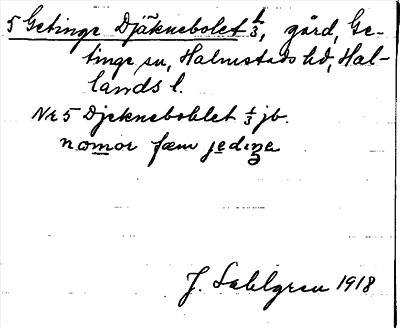 5 Getinge Djäknebolet 1/3, gård, Ge-
tinge sn, Halmstads hd, Hal-
lands l.
Nr 5 Djekneboblet 1/3 jb.
nomor fæm jedɪŋa
J. Sahlgren 1918